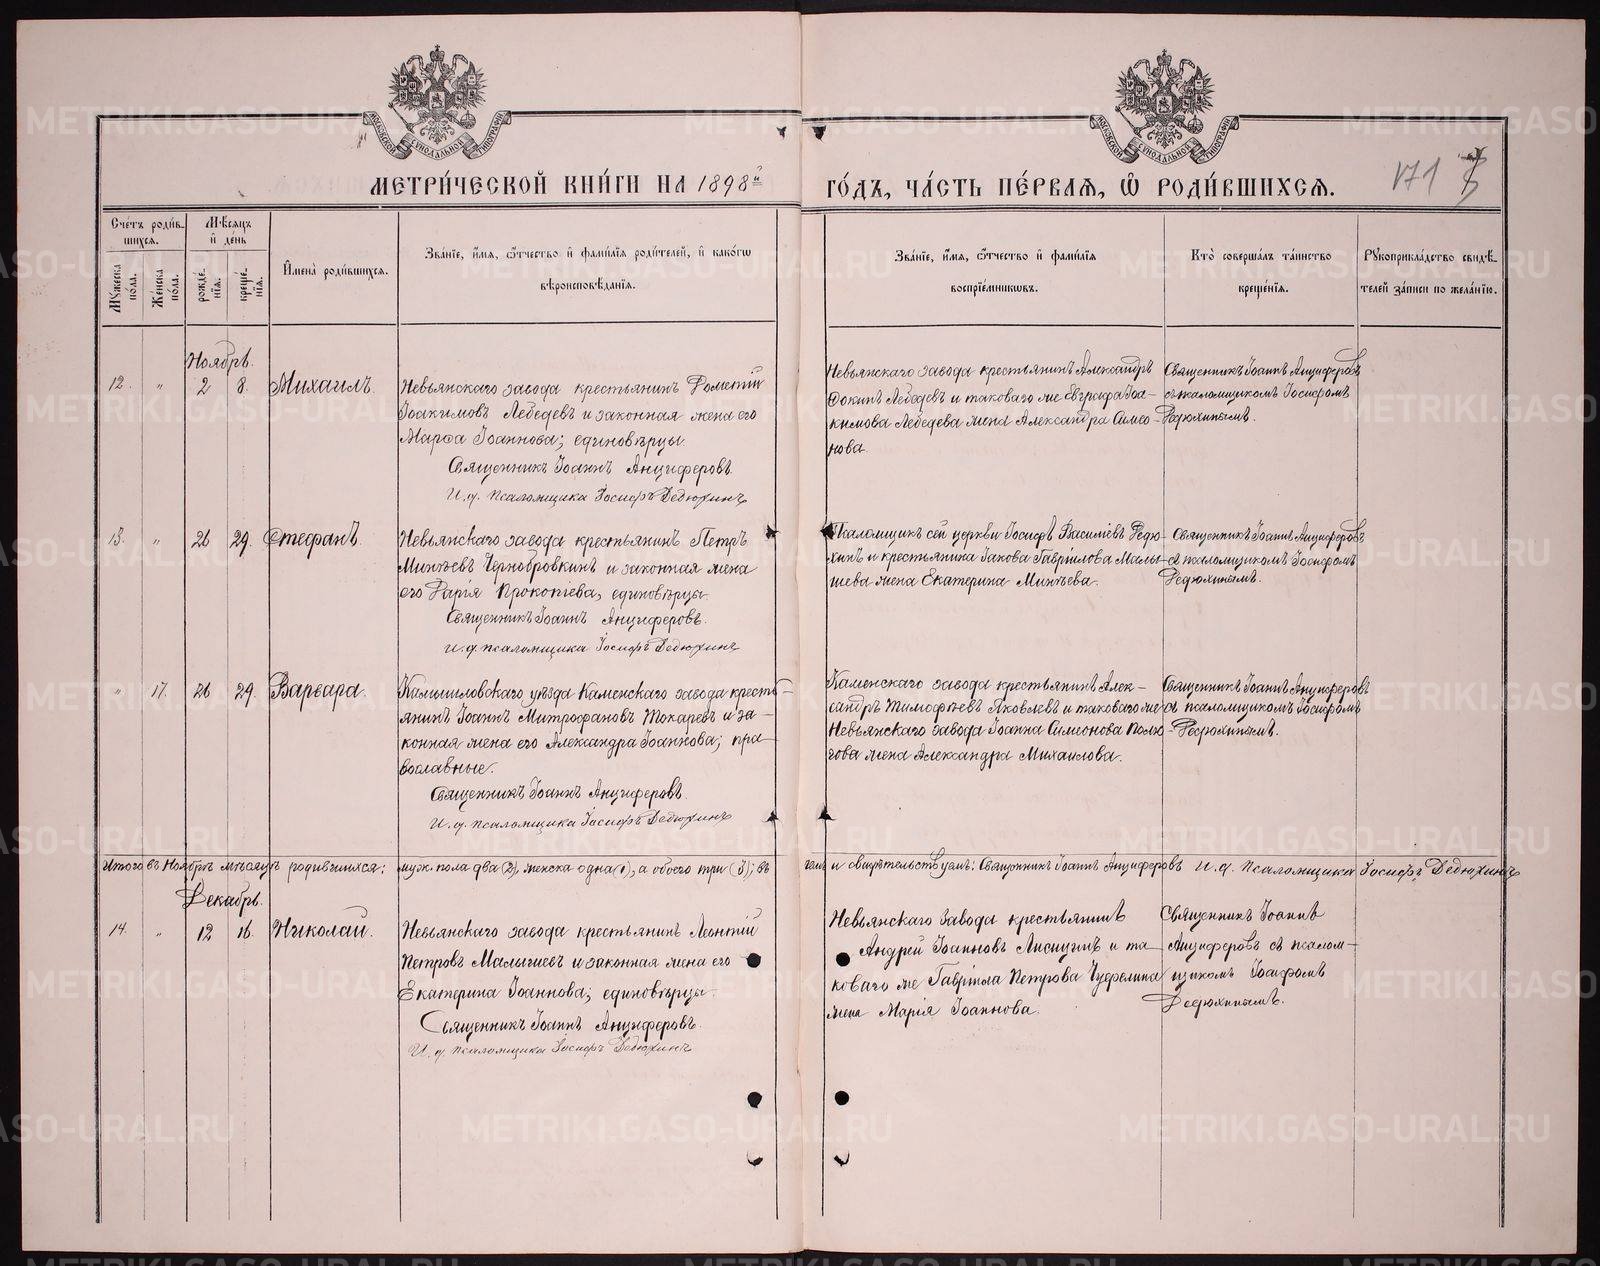 МЕТРИ́ЧЕСКОЙ КНИ́ГИ НА 1898й
ГО́ДЪ, ЧА́СТЬ ПЕ́РВАѦ, Ѡ РОДИ́ВШИХСѦ.
171
МОСКОВСКОЙ СѴНОДАЛЬНОЙ ТИПОГРАФІИ
МОСКОВСКОЙ СѴНОДАЛЬНОЙ ТИПОГРАФІИ
Счётъ роди́в-
шихсѧ.
Мꙋ́жеска по́ла.
Же́нска по́ла.
Мѣ́сѧцъ
и҆ де́нь
рожде́нїѧ.
креще́нїѧ.
И҆мена̀ роди́вшихсѧ.
Зва́нїе, и҆́мѧ, ѻ҆́тчество и҆ фами́лїѧ роди́телей, и҆ како́гѡ
вѣроисповѣ́данїѧ.
Зва́нїе, и҆́мѧ, ѻ҆́тчество и҆ фами́лїѧ
воспрїе́мникѡвъ.
Кто̀ соверша́лъ та́инство
креще́нїѧ.
Рꙋкоприкла́дство свидѣ́-
телей за́писи по жела́нїю.
Ноябрь.
12. „ 2 8. Михаилъ.
Невьянскаго завода крестьянинъ Дометій
Іоакимовъ Лебедевъ и законная жена его
Марѳа Іоаннова; единовѣрцы.
Священникъ Іоаннъ Анциферовъ.
И. д. псаломщика Іосифъ Дедюхинъ
Невьянскаго завода крестьянинъ Александръ
Фокинъ Лебедевъ и таковаго же Евграфа Іоа-
кимова Лебедева жена Александра Симео-
нова.
Священникъ Іоаннъ Анциферовъ
съ псаломщикомъ Іосифомъ
Дедюхинымъ.
13. „ 26 29. Стефанъ.
Невьянскаго завода крестьянинъ Петръ
Минѣевъ Чернобровкинъ и законная жена
его Дарія Прокопіева, единовѣрцы.
Священникъ Іоаннъ Анциферовъ.
И. д. псаломщика Іосифъ Дедюхинъ
Псаломщикъ сей церкви Іосифъ Василіевъ Дедю-
хинъ и крестьянина Іакова Гавріилова Малы-
шева жена Екатерина Минѣева.
Священникъ Іоаннъ Анциферовъ
съ псаломщикомъ Іосифомъ
Дедюхинымъ.
„ 17. 26 29. Варвара.
Камышловскаго уѣзда Каменскаго завода кресть-
янинъ Іоаннъ Митрофановъ Токаревъ и за-
конная жена его Александра Іоаннова; пра-
вославные.
Священникъ Іоаннъ Анциферовъ.
И. д. псаломщика Іосифъ Дедюхинъ
Каменскаго завода крестьянинъ Алек-
сандръ Тимофѣевъ Яковлевъ и таковаго же
Невьянскаго завода Іоанна Симеонова
жена Александра Михаилова.
Священникъ Іоаннъ Анциферовъ
съ псаломщикомъ Іосифомъ
Дедюхинымъ.
Итого въ Ноябрѣ мѣсяцѣ родившихся: муж. пола два (2), женска одна (1), а обоего три (3); въ
чемъ и свидѣтельствуемъ: Священникъ Іоаннъ Анциферовъ И. д. псаломщика Іосифъ Дедюхинъ
Декабрь.
14. „ 12 16. Николай.
Невьянскаго завода крестьянинъ Леонтій
Петровъ Малышевъ и законная жена его
Екатерина Іоаннова; единовѣрцы.
Священникъ Іоаннъ Анциферовъ.
И. д. псаломщика Іосифъ Дедюхинъ
Невьянскаго завода крестьянинъ
Андрей Іоанновъ Лисицынъ и та-
коваго же Гавріила Петрова
жена Марія Іоаннова.
Священникъ Іоаннъ
Анциферовъ съ псалом-
щикомъ Іосифомъ
Дедюхинымъ.
METRIKI.GASO-URAL.RU